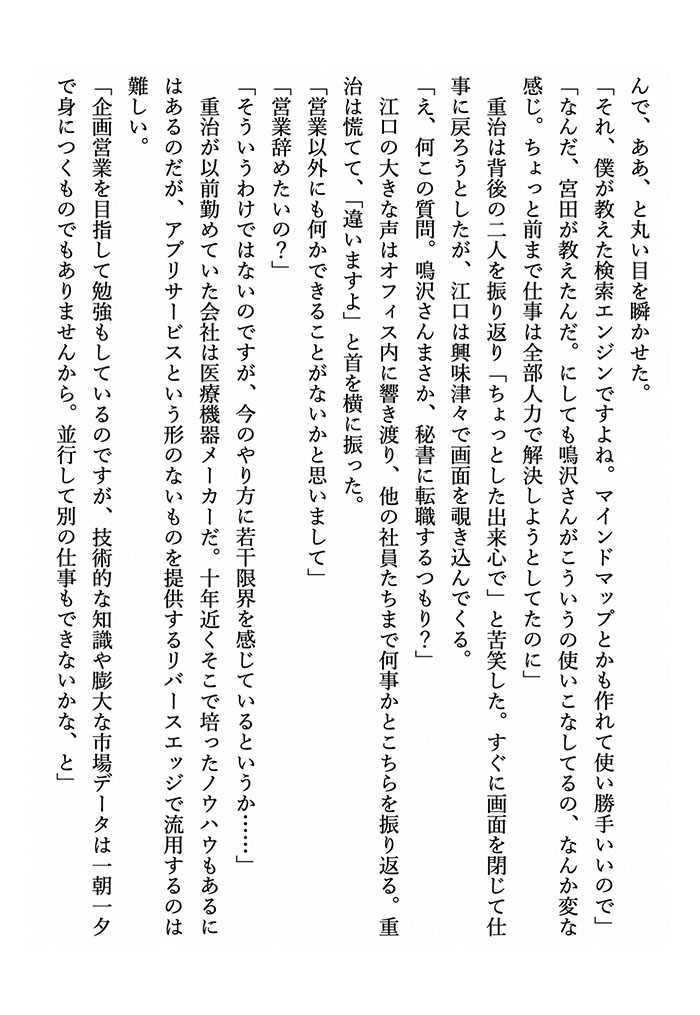 んで、ああ、と丸い目を瞬かせた。
「それ、僕が教えた検索エンジンですよね。マインドマップとかも作れて使い勝手いいので」
「なんだ、宮田が教えたんだ。にしても鳴沢さんがこういうの使いこなしてるの、なんか変な
感じ。ちょっと前まで仕事は全部人力で解決しようとしてたのに」
　重治は背後の二人を振り返り「ちょっとした出来心で」と苦笑した。すぐに画面を閉じて仕
事に戻ろうとしたが、江口は興味津々で画面を覗き込んでくる。
「え、何この質問。鳴沢さんまさか、秘書に転職するつもり？」
　江口の大きな声はオフィス内に響き渡り、他の社員たちまで何事かとこちらを振り返る。重
治は慌てて、「違いますよ」と首を横に振った。
「営業以外にも何かできることがないかと思いまして」
「営業辞めたいの？」
「そういうわけではないのですが、今のやり方に若干限界を感じているというか……」
　重治が以前勤めていた会社は医療機器メーカーだ。十年近くそこで培ったノウハウもあるに
はあるのだが、アプリサービスという形のないものを提供するリバースエッジで流用するのは
難しい。
「企画営業を目指して勉強もしているのですが、技術的な知識や膨大な市場データは一朝一夕
で身につくものでもありませんから。並行して別の仕事もできないかな、と」